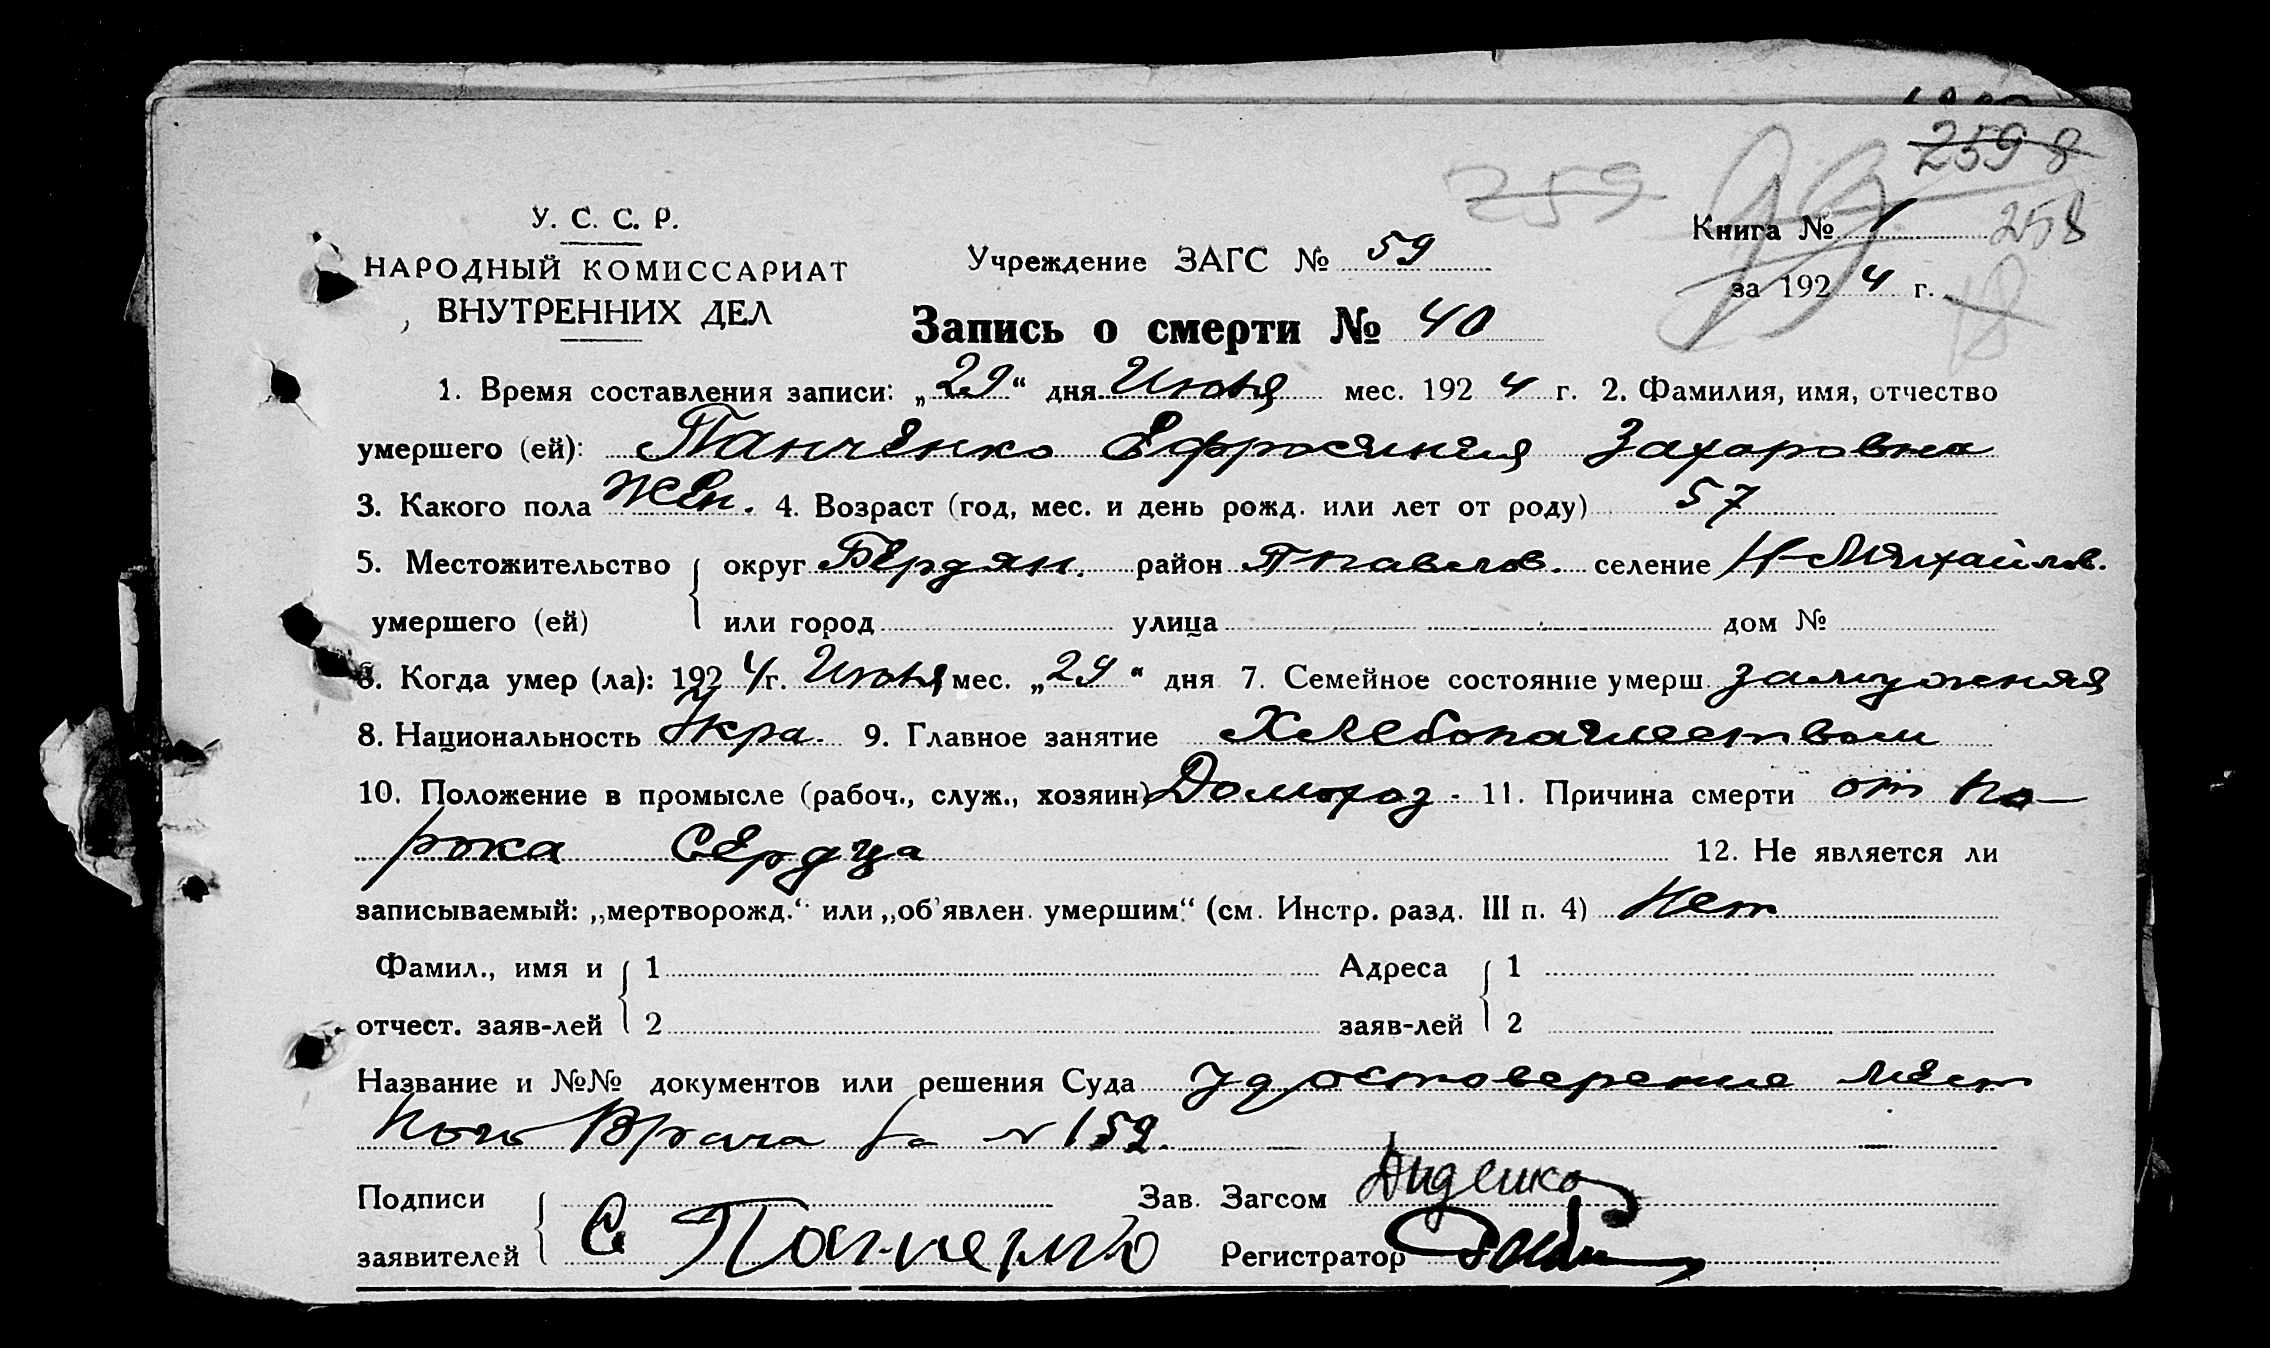 259 8
259
99
У. С. С. Р.
Книга № 1 258
НАРОДНЫЙ КОМИССАРИАТ
Учреждение ЗАГС № 59
за 1924 г. 18
ВНУТРЕННИХ ДЕЛ
Запись о смерти № 40
1. Время составления записи: „29“ дня Июня мес. 1924 г. 2. Фамилия, имя, отчество
умершего (ей): Панченко Ефросиния Захаровна
3. Какого пола Жен. 4. Возраст (год, мес. и день рожд. или лет от роду) 57
5. Местожительство округ Бердян. район селение Н-Михайлов.
умершего (ей) или город улица дом №
6. Когда умер (ла): 1924 г. Июня мес. „29“ дня 7. Семейное состояние умерш. замужняя
8. Национальность Укра. 9. Главное занятие Хлебопашеством
10. Положение в промысле (рабоч., служ., хозяин) Домохоз. 11. Причина смерти от по-
рока сердца 12. Не является ли
записываемый: „мертворожд.“ или „об'явлен. умершим“ (см. Инстр. разд. III п. 4) Нет
Фамил., имя и 1 Адреса 1
отчест. заяв-лей 2 заяв-лей 2
Название и №№ документов или решения Суда удостоверение мест
ного Врача за № 159.
Подписи Зав. Загсом Диденко
заявителей С Панченко Регистратор